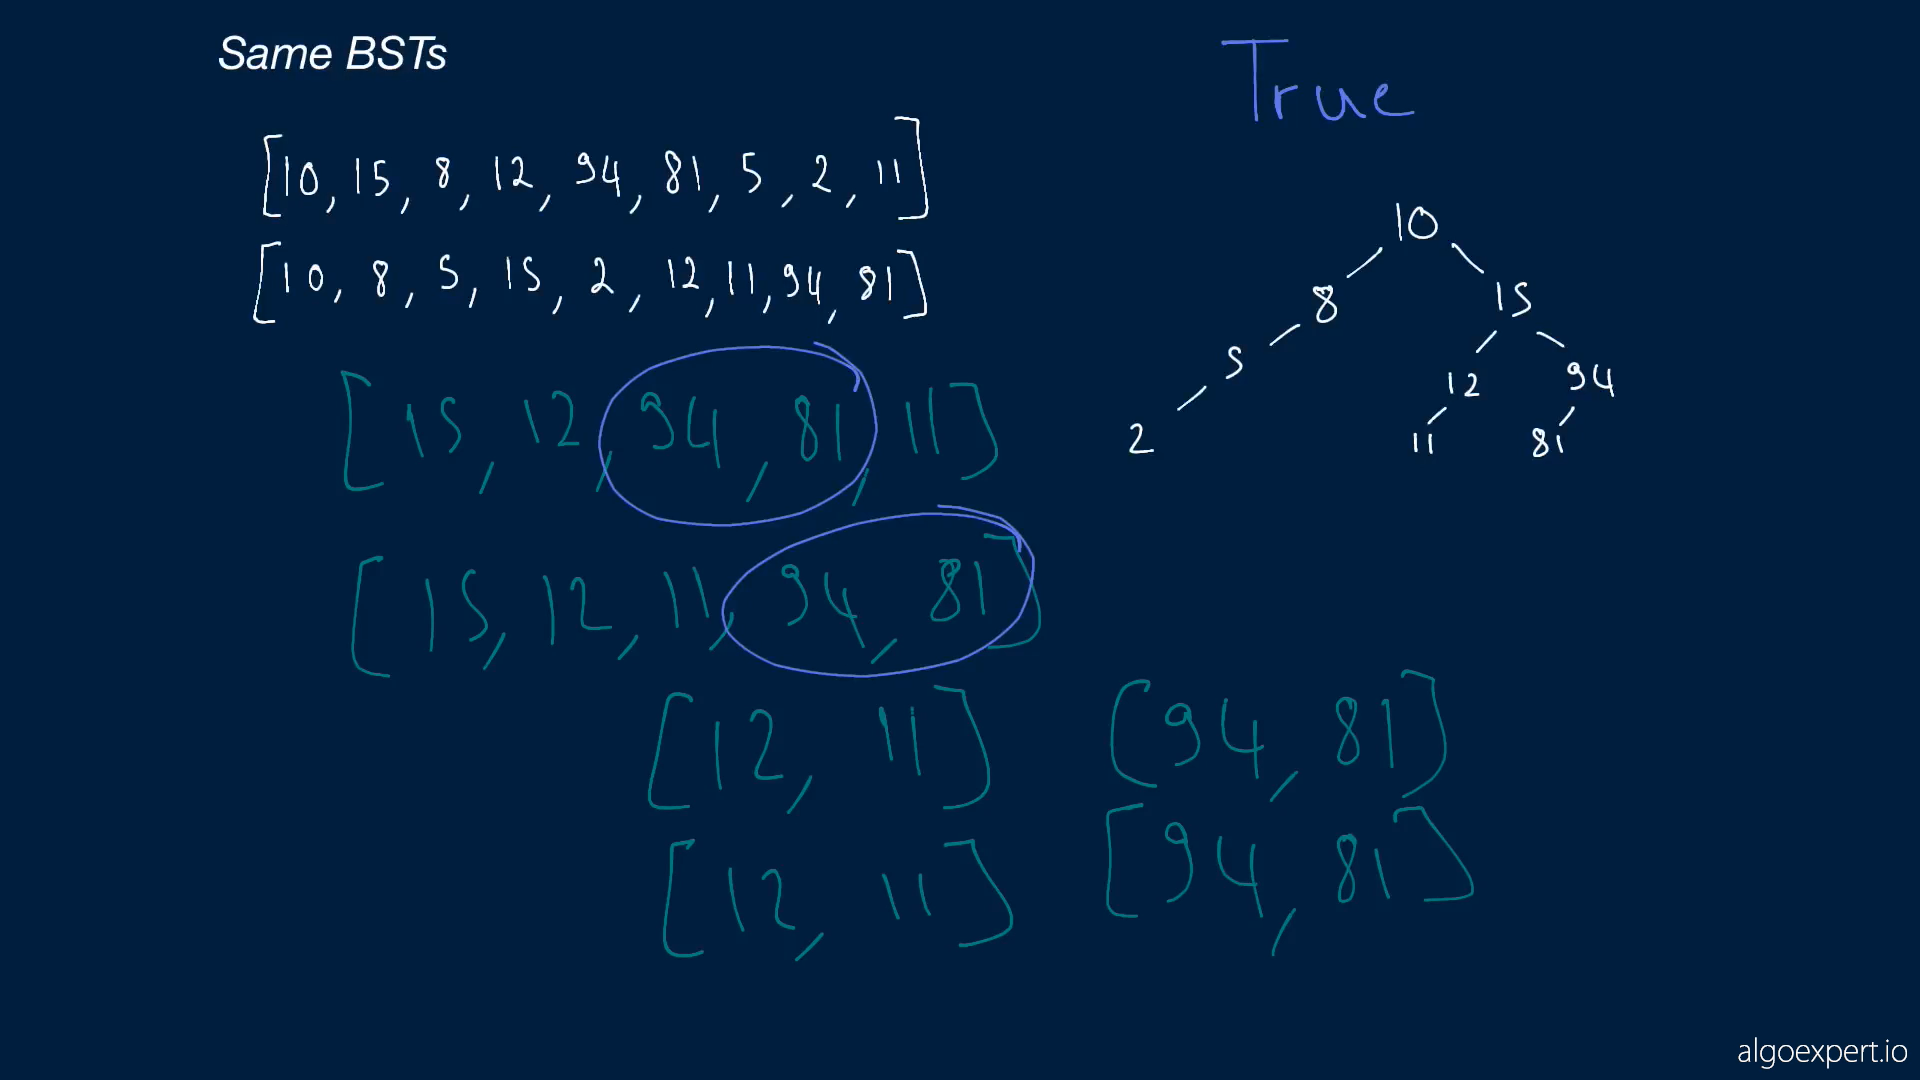 Same BSTs
True
[10, 15, 8, 12, 94, 81, 5, 2, 11]
[10, 8, 5, 15, 2, 12, 11, 94, 81]
10
8 15
5 12 94
2 11 81
[15, 12, 94, 81, 11]
[15, 12, 11, 94, 81]
[12, 11] [94, 81]
[12, 11] [94, 81]
algoexpert.io